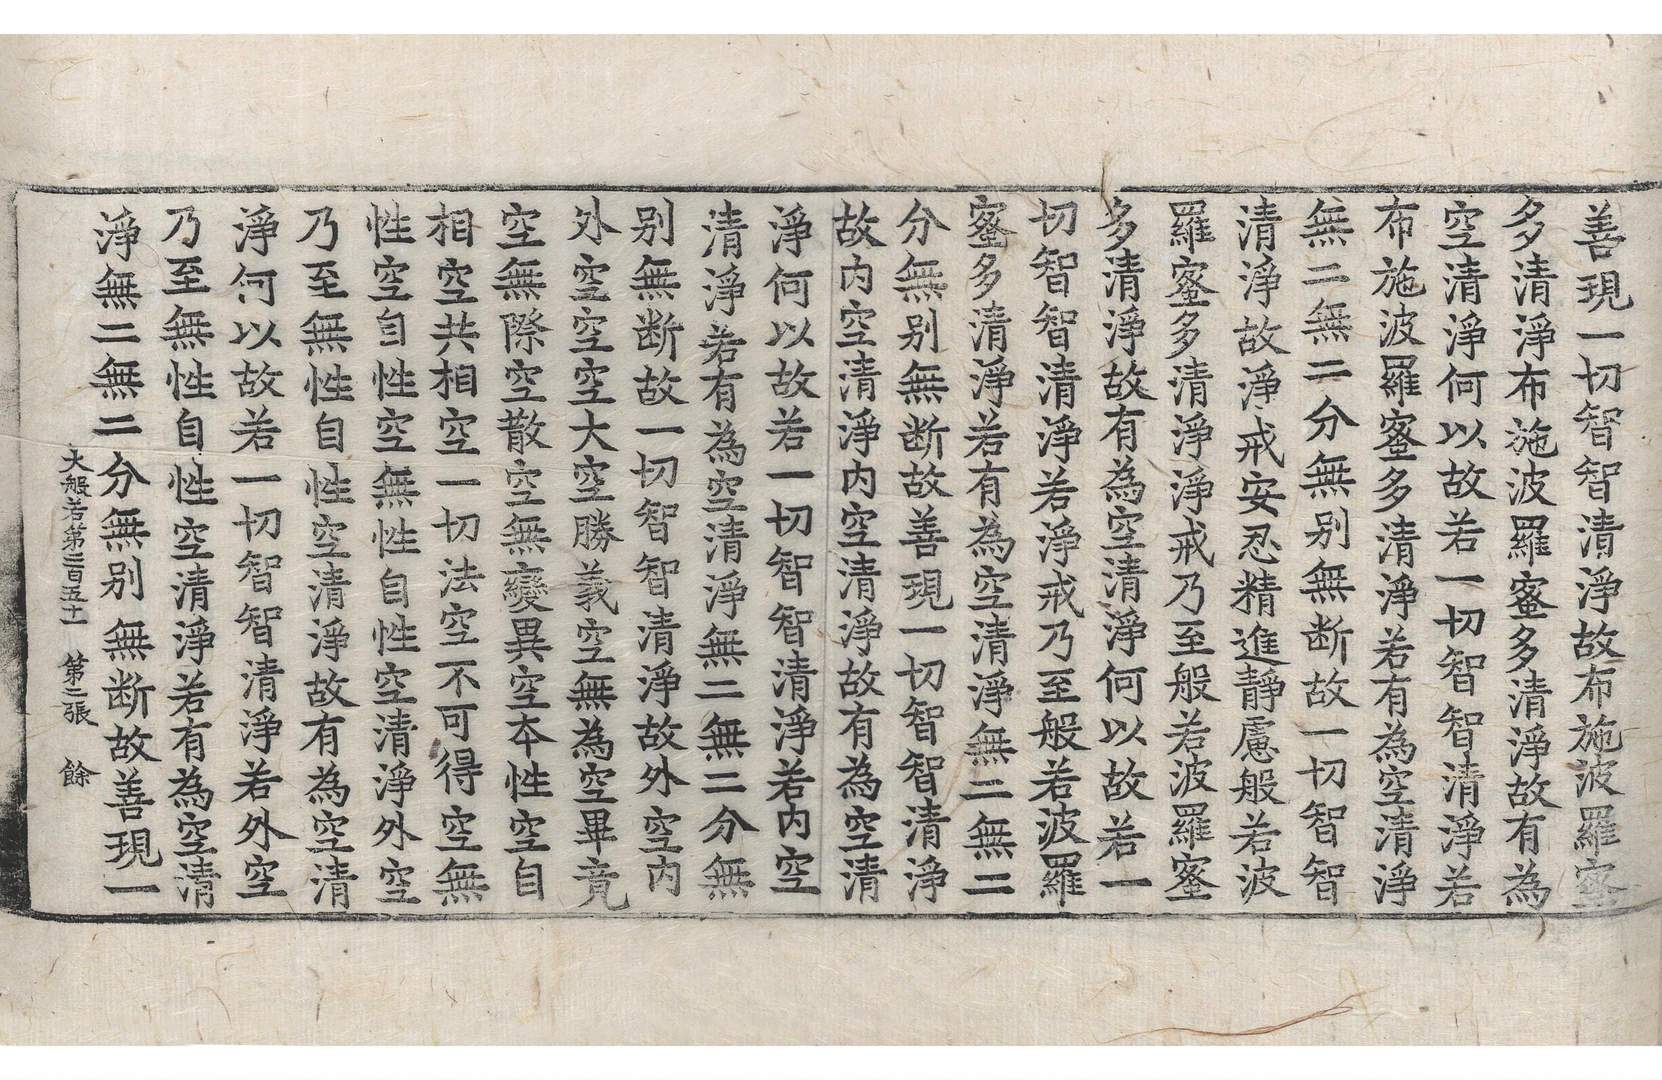 善現一切智智清淨故布施波羅蜜
多清淨布施波羅蜜多清淨故有為
空清淨何以故若一切智智清淨若
布施波羅蜜多清淨若有為空清淨
無二無二分無别無断故一切智智
清淨故淨戒安忍精進靜慮般若波
羅蜜多清淨淨戒乃至般若波羅蜜
多清淨故有為空清淨何以故若一
切智智清淨若淨戒乃至般若波羅
蜜多清淨若有為空清淨無二無二
分無别無断故善現一切智智清淨
故内空清淨内空清淨故有為空清
淨何以故若一切智智清淨若内空
清淨若有為空清淨無二無二分無
别無断故一切智智清淨故外空内
外空空空大空勝義空無為空畢竟
空無際空散空無變異空夲性空自
相空共相空一切法空不可得空無
性空自性空無性自性空清淨外空
乃至無性自性空清淨故有為空清
淨何以故若一切智智清淨若外空
乃至無性自性空清淨若有為空清
淨無二無二分無别無断故善現一
大般若第二百五十一 第二張 餘